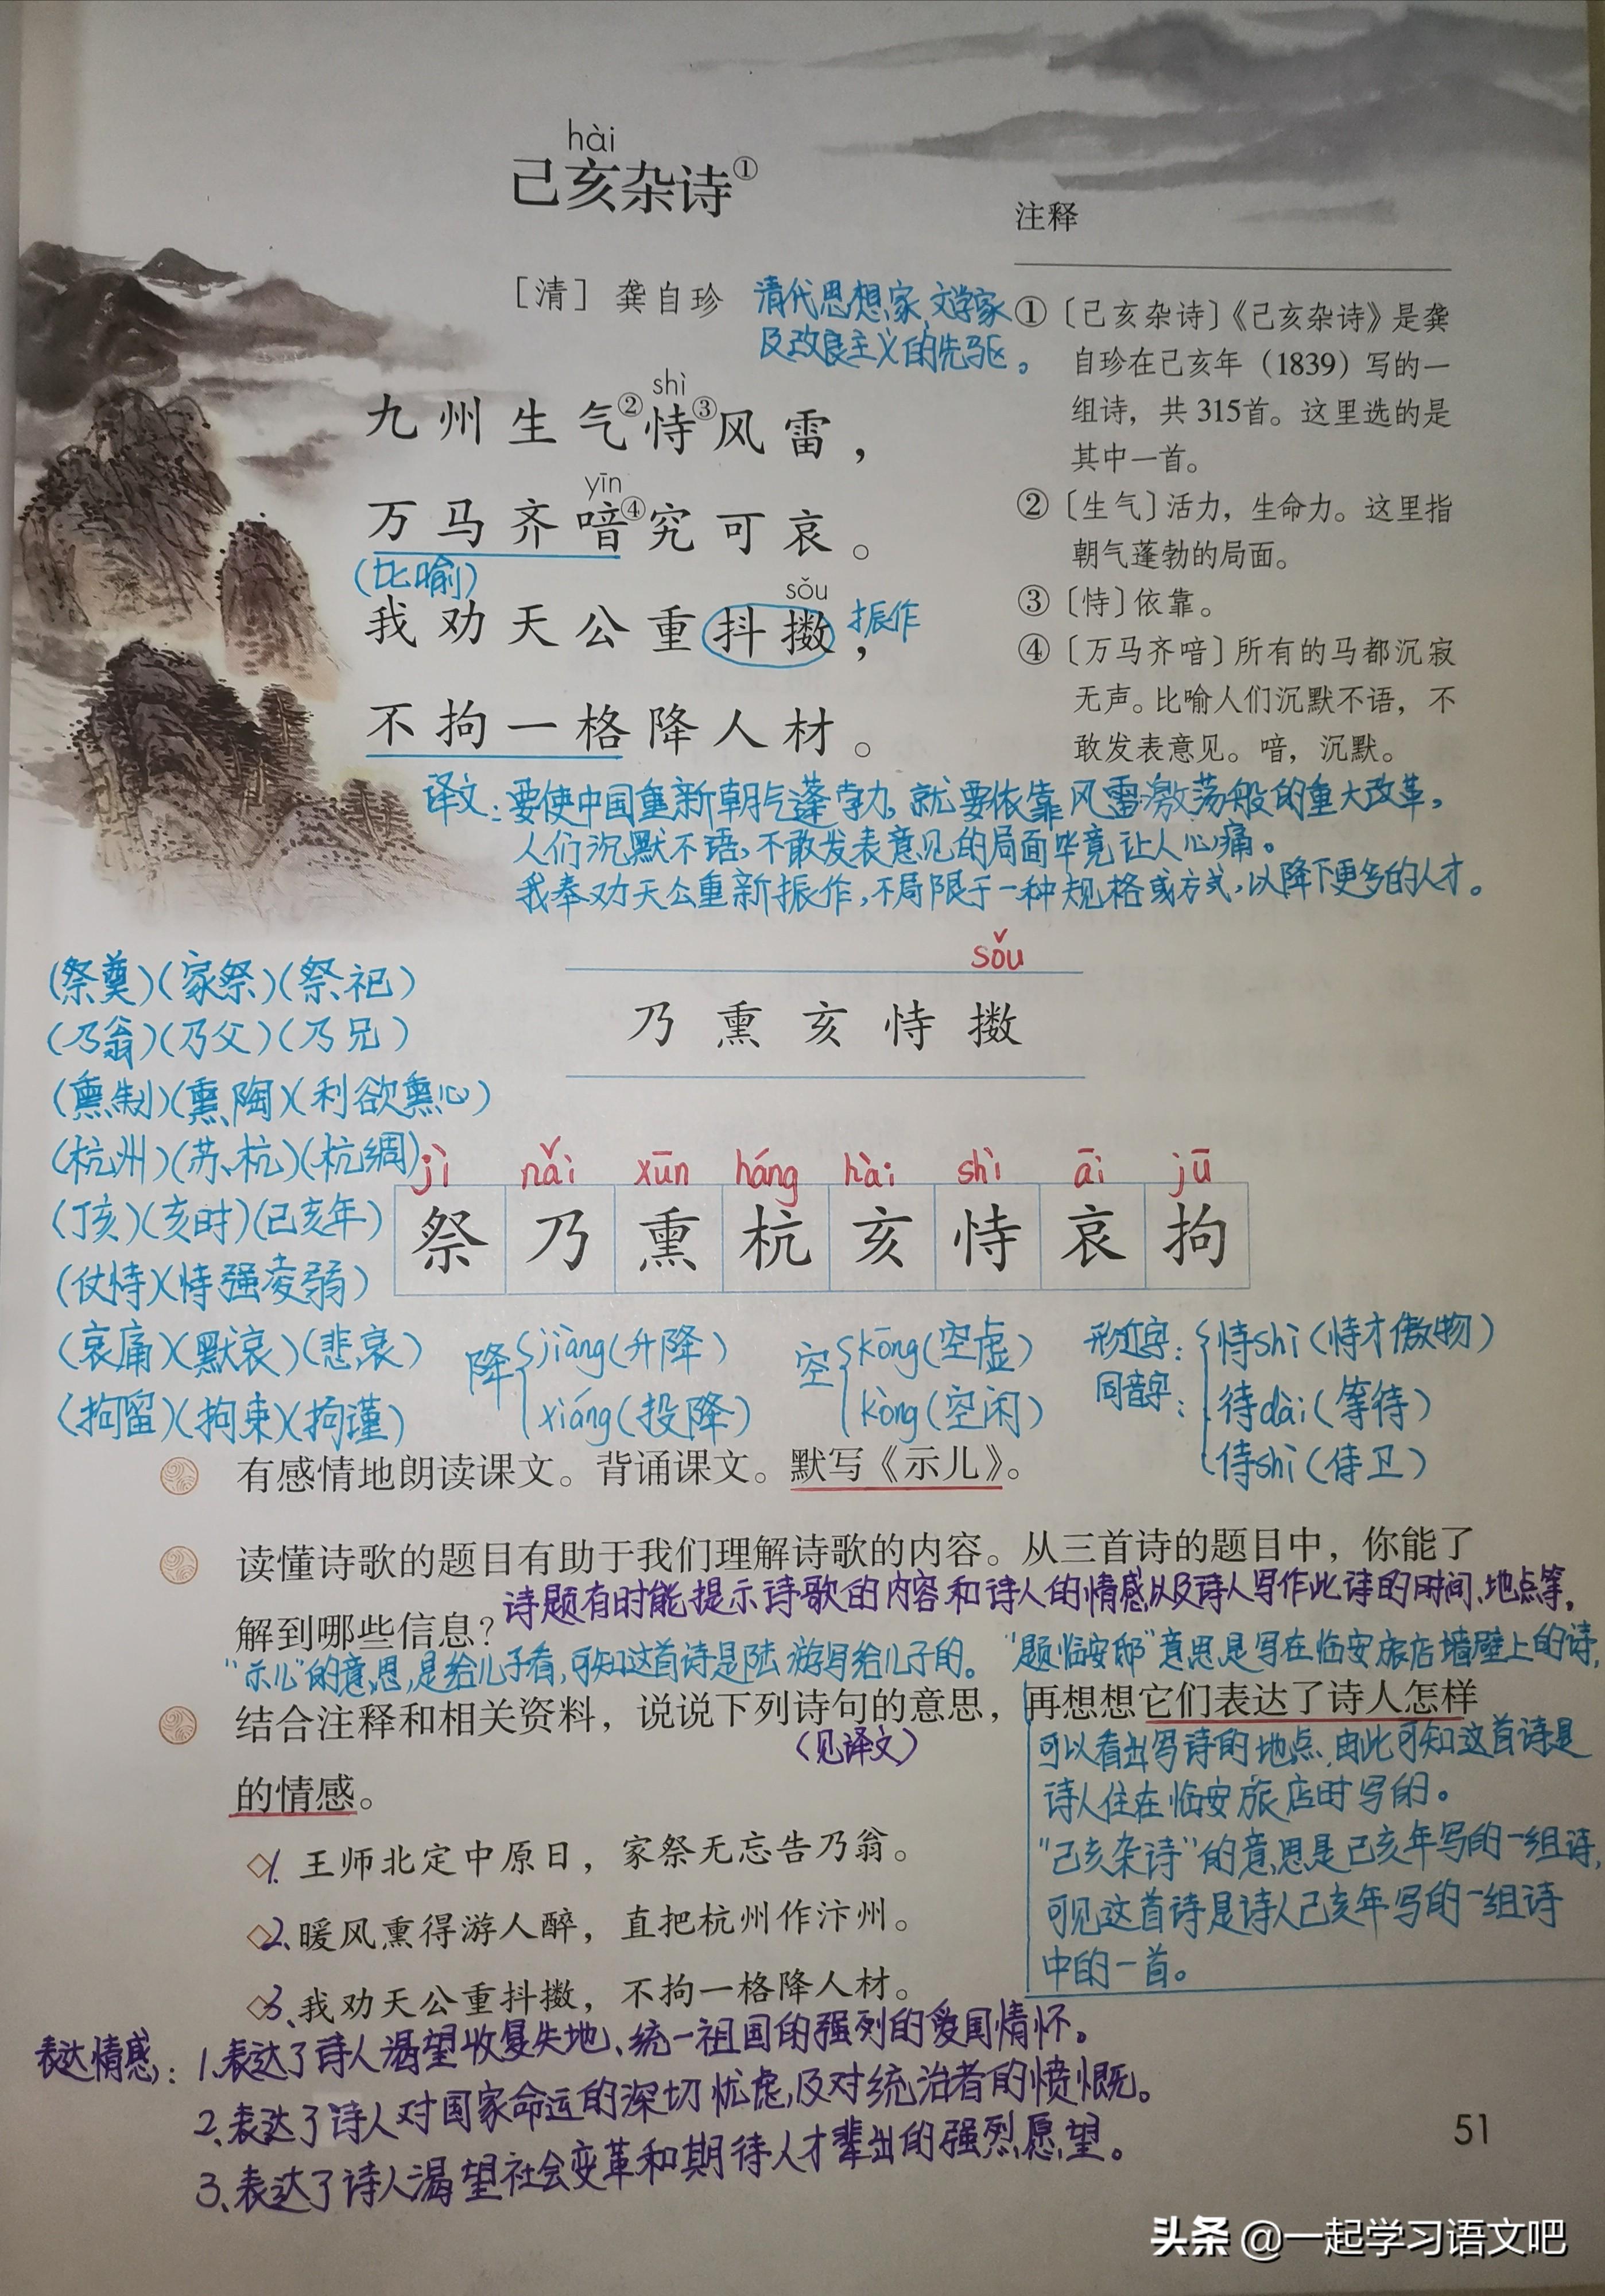 hài
己亥杂诗①
[清] 龚自珍
清代思想家、文学家
及改良主义的先驱。
shì
九州生气②恃③风雷，
yīn
万马齐喑④究可哀。
(比喻)
sǒu
我劝天公重抖擞，
振作
不拘一格降人材。
注释
①〔己亥杂诗〕《己亥杂诗》是龚
自珍在己亥年（1839）写的一
组诗，共315首。这里选的是
其中一首。
②〔生气〕活力，生命力。这里指
朝气蓬勃的局面。
③〔恃〕依靠。
④〔万马齐喑〕所有的马都沉寂
无声。比喻人们沉默不语，不
敢发表意见。喑，沉默。
译文：要使中国重新朝气蓬勃，就要依靠风雷激荡般的重大改革，
人们沉默不语，不敢发表意见的局面毕竟让人心痛。
我奉劝天公重新振作，不局限于一种规格或方式，以降下更多的人才。
sǒu
乃 熏 亥 恃 擞
(祭奠)(家祭)(祭祀)
(乃翁)(乃父)(乃兄)
(熏制)(熏陶)(利欲熏心)
(杭州)(苏杭)(杭绸)
(丁亥)(亥时)(己亥年)
(仗恃)(恃强凌弱)
(哀痛)(默哀)(悲哀)
(拘留)(拘束)(拘谨)
jì nǎi xūn háng hài shì āi jū
祭 乃 熏 杭 亥 恃 哀 拘
降 jiàng(升降)
xiáng(投降)
空 kōng(空虚)
kòng(空闲)
形近字：
同音字：
恃shì(恃才傲物)
待dài(等待)
侍shì(侍卫)
有感情地朗读课文。背诵课文。默写《示儿》。
读懂诗歌的题目有助于我们理解诗歌的内容。从三首诗的题目中，你能了
解到哪些信息？
诗题有时能提示诗歌的内容和诗人的情感以及诗人写作此诗的时间、地点等。
“示儿”的意思，是给儿子看，可知这首诗是陆游写给儿子的。
“题临安邸”意思是写在临安旅店墙壁上的诗，
可以看出写诗的地点，由此可知这首诗是
诗人住在临安旅店时写的。
“己亥杂诗”的意思是己亥年写的一组诗，
可见这首诗是诗人己亥年写的一组诗
中的一首。
结合注释和相关资料，说说下列诗句的意思，再想想它们表达了诗人怎样
(见译文)
的情感。
1. 王师北定中原日，家祭无忘告乃翁。
2、暖风熏得游人醉，直把杭州作汴州。
3、我劝天公重抖擞，不拘一格降人材。
表达情感：1、表达了诗人渴望收复失地、统一祖国的强烈的爱国情怀。
2、表达了诗人对国家命运的深切忧虑，及对统治者的愤慨。
3、表达了诗人渴望社会变革和期待人才辈出的强烈愿望。
51
头条 @一起学习语文吧